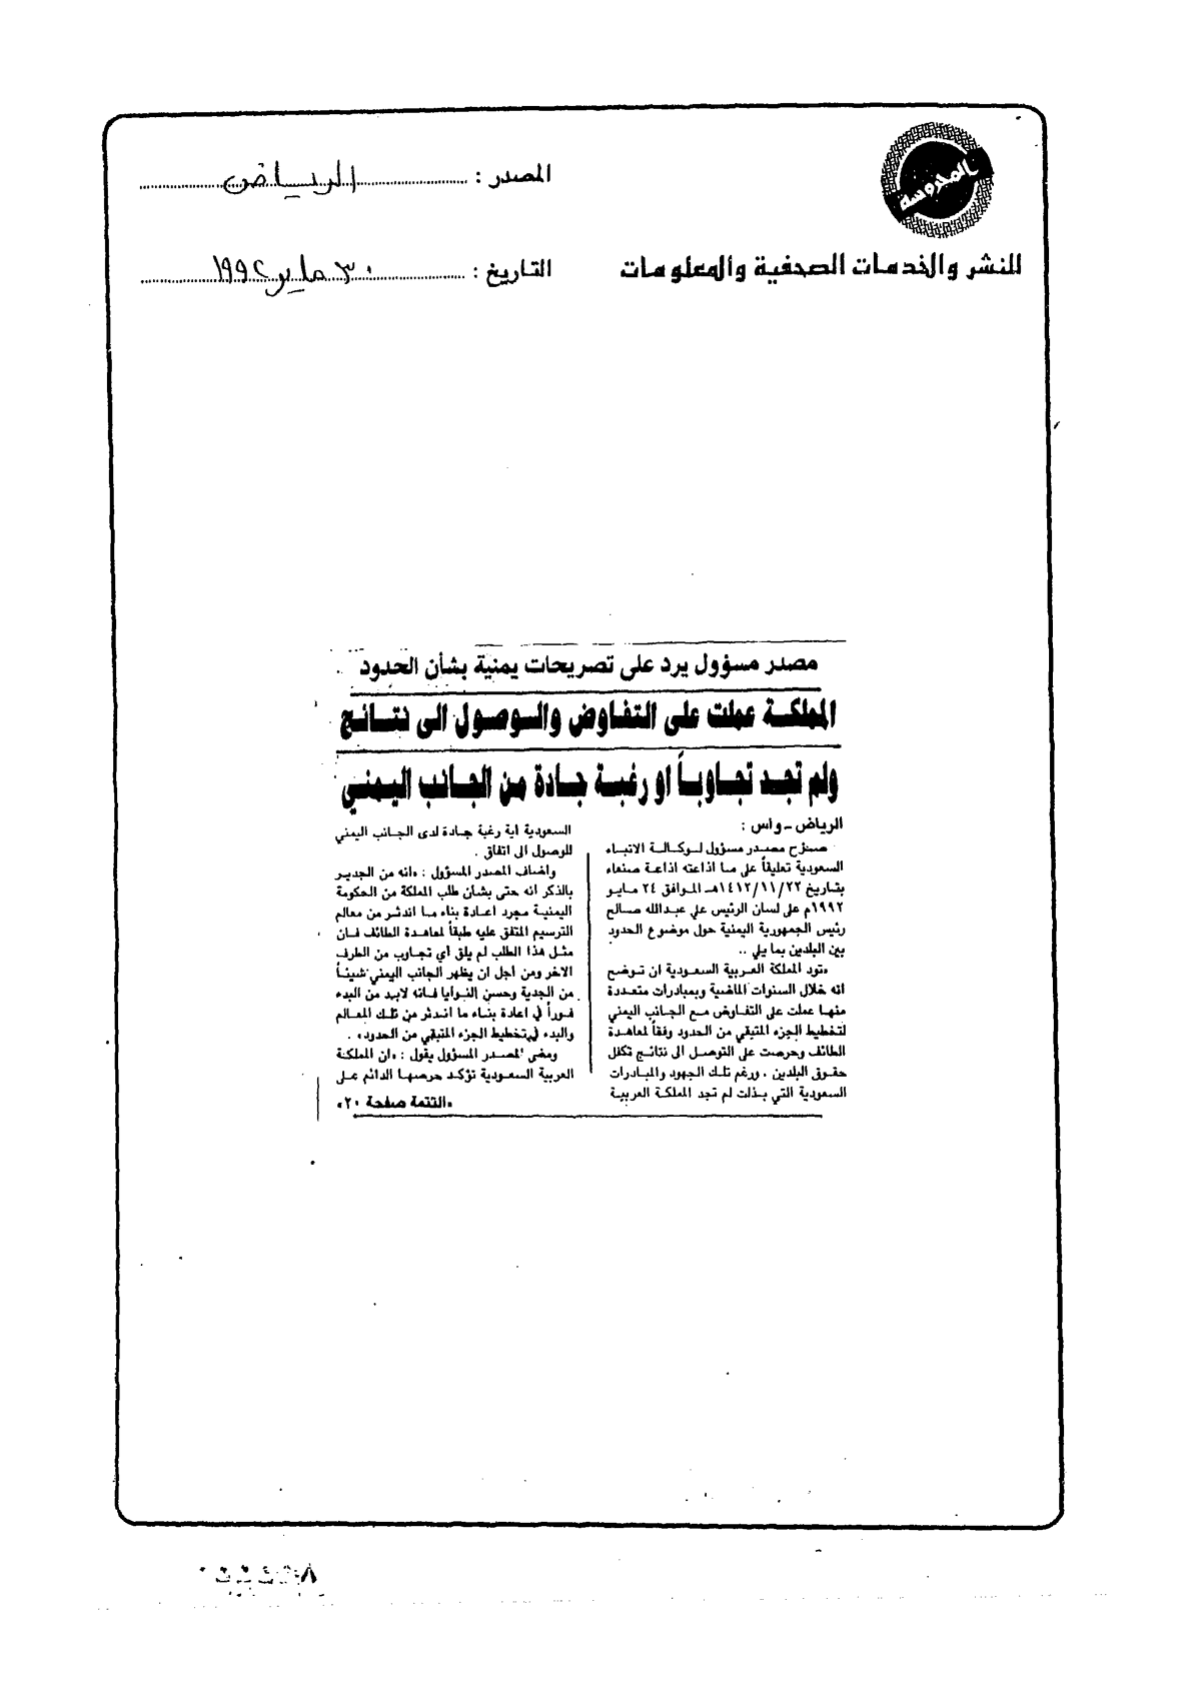 المحروسة
للنشر والخدمات الصحفية والمعلومات
المصدر : الرياض
التاريخ : ٣٠ مايو ١٩٩٢
مصدر مسؤول يرد على تصريحات يمنية بشأن الحدود
المملكة عملت على التفاوض والوصول الى نتائج
ولم تجد تجاوباً او رغبة جادة من الجانب اليمني
الرياض - واس :
صرّح مصدر مسؤول لوكالة الانباء
السعودية تعليقاً على ما اذاعته اذاعة صنعاء
بتاريخ ١٤١٢/١١/٢٢هـ الموافق ٢٤ مايو
١٩٩٢م على لسان الرئيس علي عبدالله صالح
رئيس الجمهورية اليمنية حول موضوع الحدود
بين البلدين بما يلي ..
«تود المملكة العربية السعودية ان توضح
انه خلال السنوات الماضية وبمبادرات متعددة
منها عملت على التفاوض مع الجانب اليمني
لتخطيط الجزء المتبقي من الحدود وفقاً لمعاهدة
الطائف وحرصت على التوصل الى نتائج تكفل
حقوق البلدين . ورغم تلك الجهود والمبادرات
السعودية التي بذلت لم تجد المملكة العربية
السعودية اية رغبة جادة لدى الجانب اليمني
للوصول الى اتفاق .
واضاف المصدر المسؤول : «انه من الجدير
بالذكر انه حتى بشأن طلب المملكة من الحكومة
اليمنية مجرد اعادة بناء ما اندثر من معالم
الترسيم المتفق عليه طبقاً لمعاهدة الطائف فان
مثل هذا الطلب لم يلق أي تجاوب من الطرف
الاخر ومن أجل ان يظهر الجانب اليمني شيئاً
من الجدية وحسن النوايا فانه لابد من البدء
فوراً في اعادة بناء ما اندثر من تلك المعالم
والبدء في تخطيط الجزء المتبقي من الحدود» .
ومضى المصدر المسؤول يقول : «ان المملكة
العربية السعودية تؤكد حرصها الدائم على
«التتمة صفحة ٢٠»